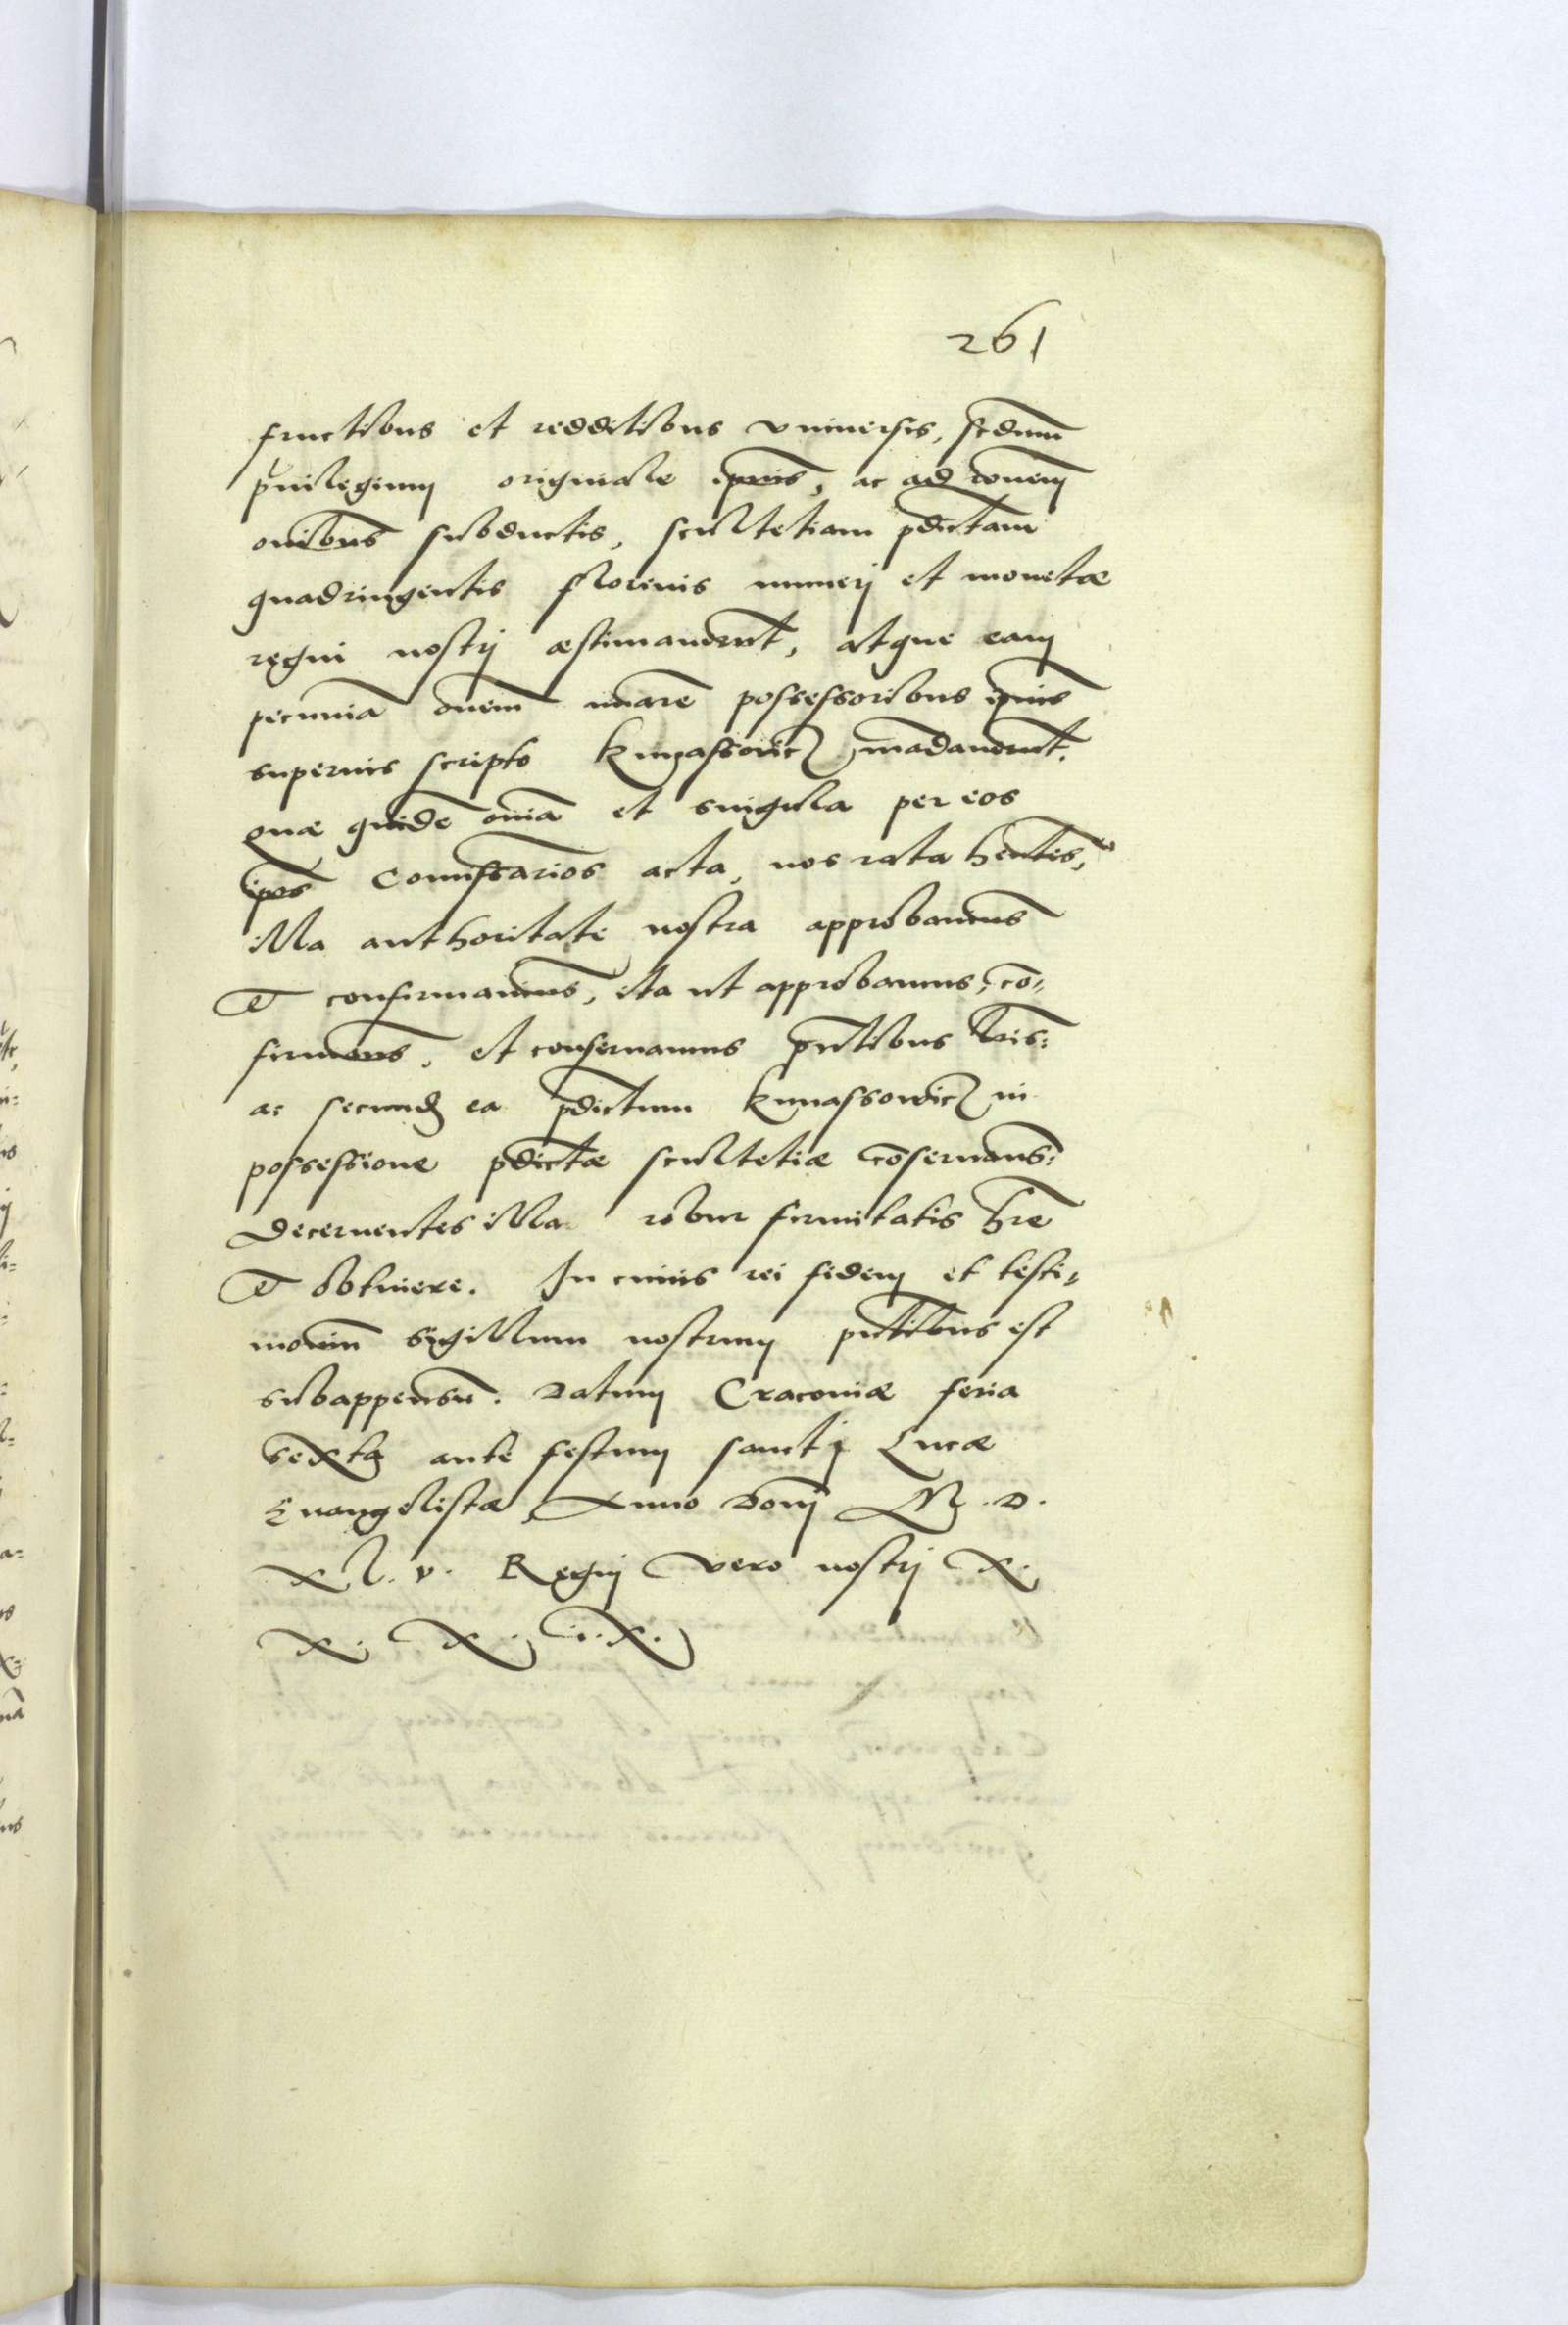 261
fructibus et redditibus vniuersis, secdum̄
p̄uilegium originale ip̄ius, ac ad rōnem
om̄ibus subductis, scultetiam p̄dictam
quadringentis florenis numerj et monetæ
regni nostrj æstimauer̄t, atque eam
pecuniā om̄em nūare possessoribus ip̄ius
superius scripto Kunassowicz mādauer̄t.
quæ quidē om̄ia et singula per eos
ip̄os Com̄issarios acta, nos rata hēntes,
illa authoritate nostra approbandus̄
et confirmandus̄, ita ut approbamus, cō-
firmams̄, et conseruamus p̄ntibus l̄ris:
ac secundum ea p̄dictum Kunassowicz in
possessione p̄dictæ scultetiæ cōseruams̄:
Decernentes illa robur firmitatis h̄re
et obtinere. In cuius rei fidem et testi-
monium̄ sigillum nostrum p̄ntibus est
subappensū. Datum Cracouiæ feria
sexta ante festum sanctj Lucæ
Euangelistæ, Anno Domj M. D.
XL. v. Regnj vero nostrj X.
X. X. i. X.